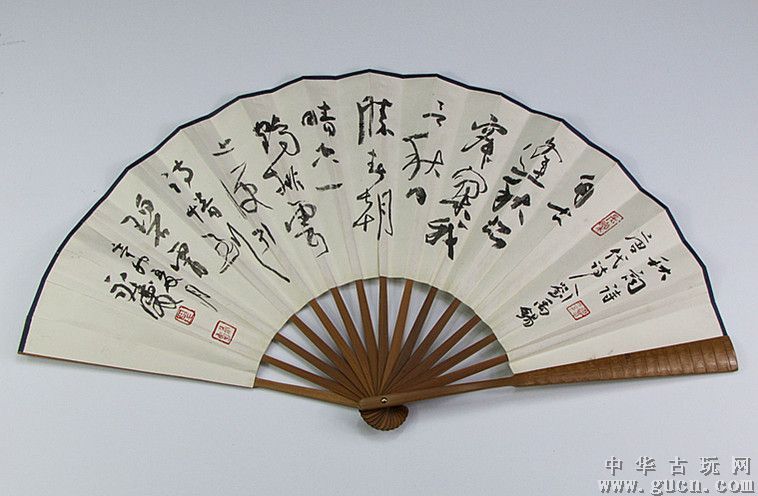 秋词诗
唐代诗人劉禹錫
自古
逢秋悲
寂寥我
言秋日
勝春朝
晴空一
鹤排雲
上便引
诗情到
碧霄
辛卯夏月
中华古玩网
www.gucn.com